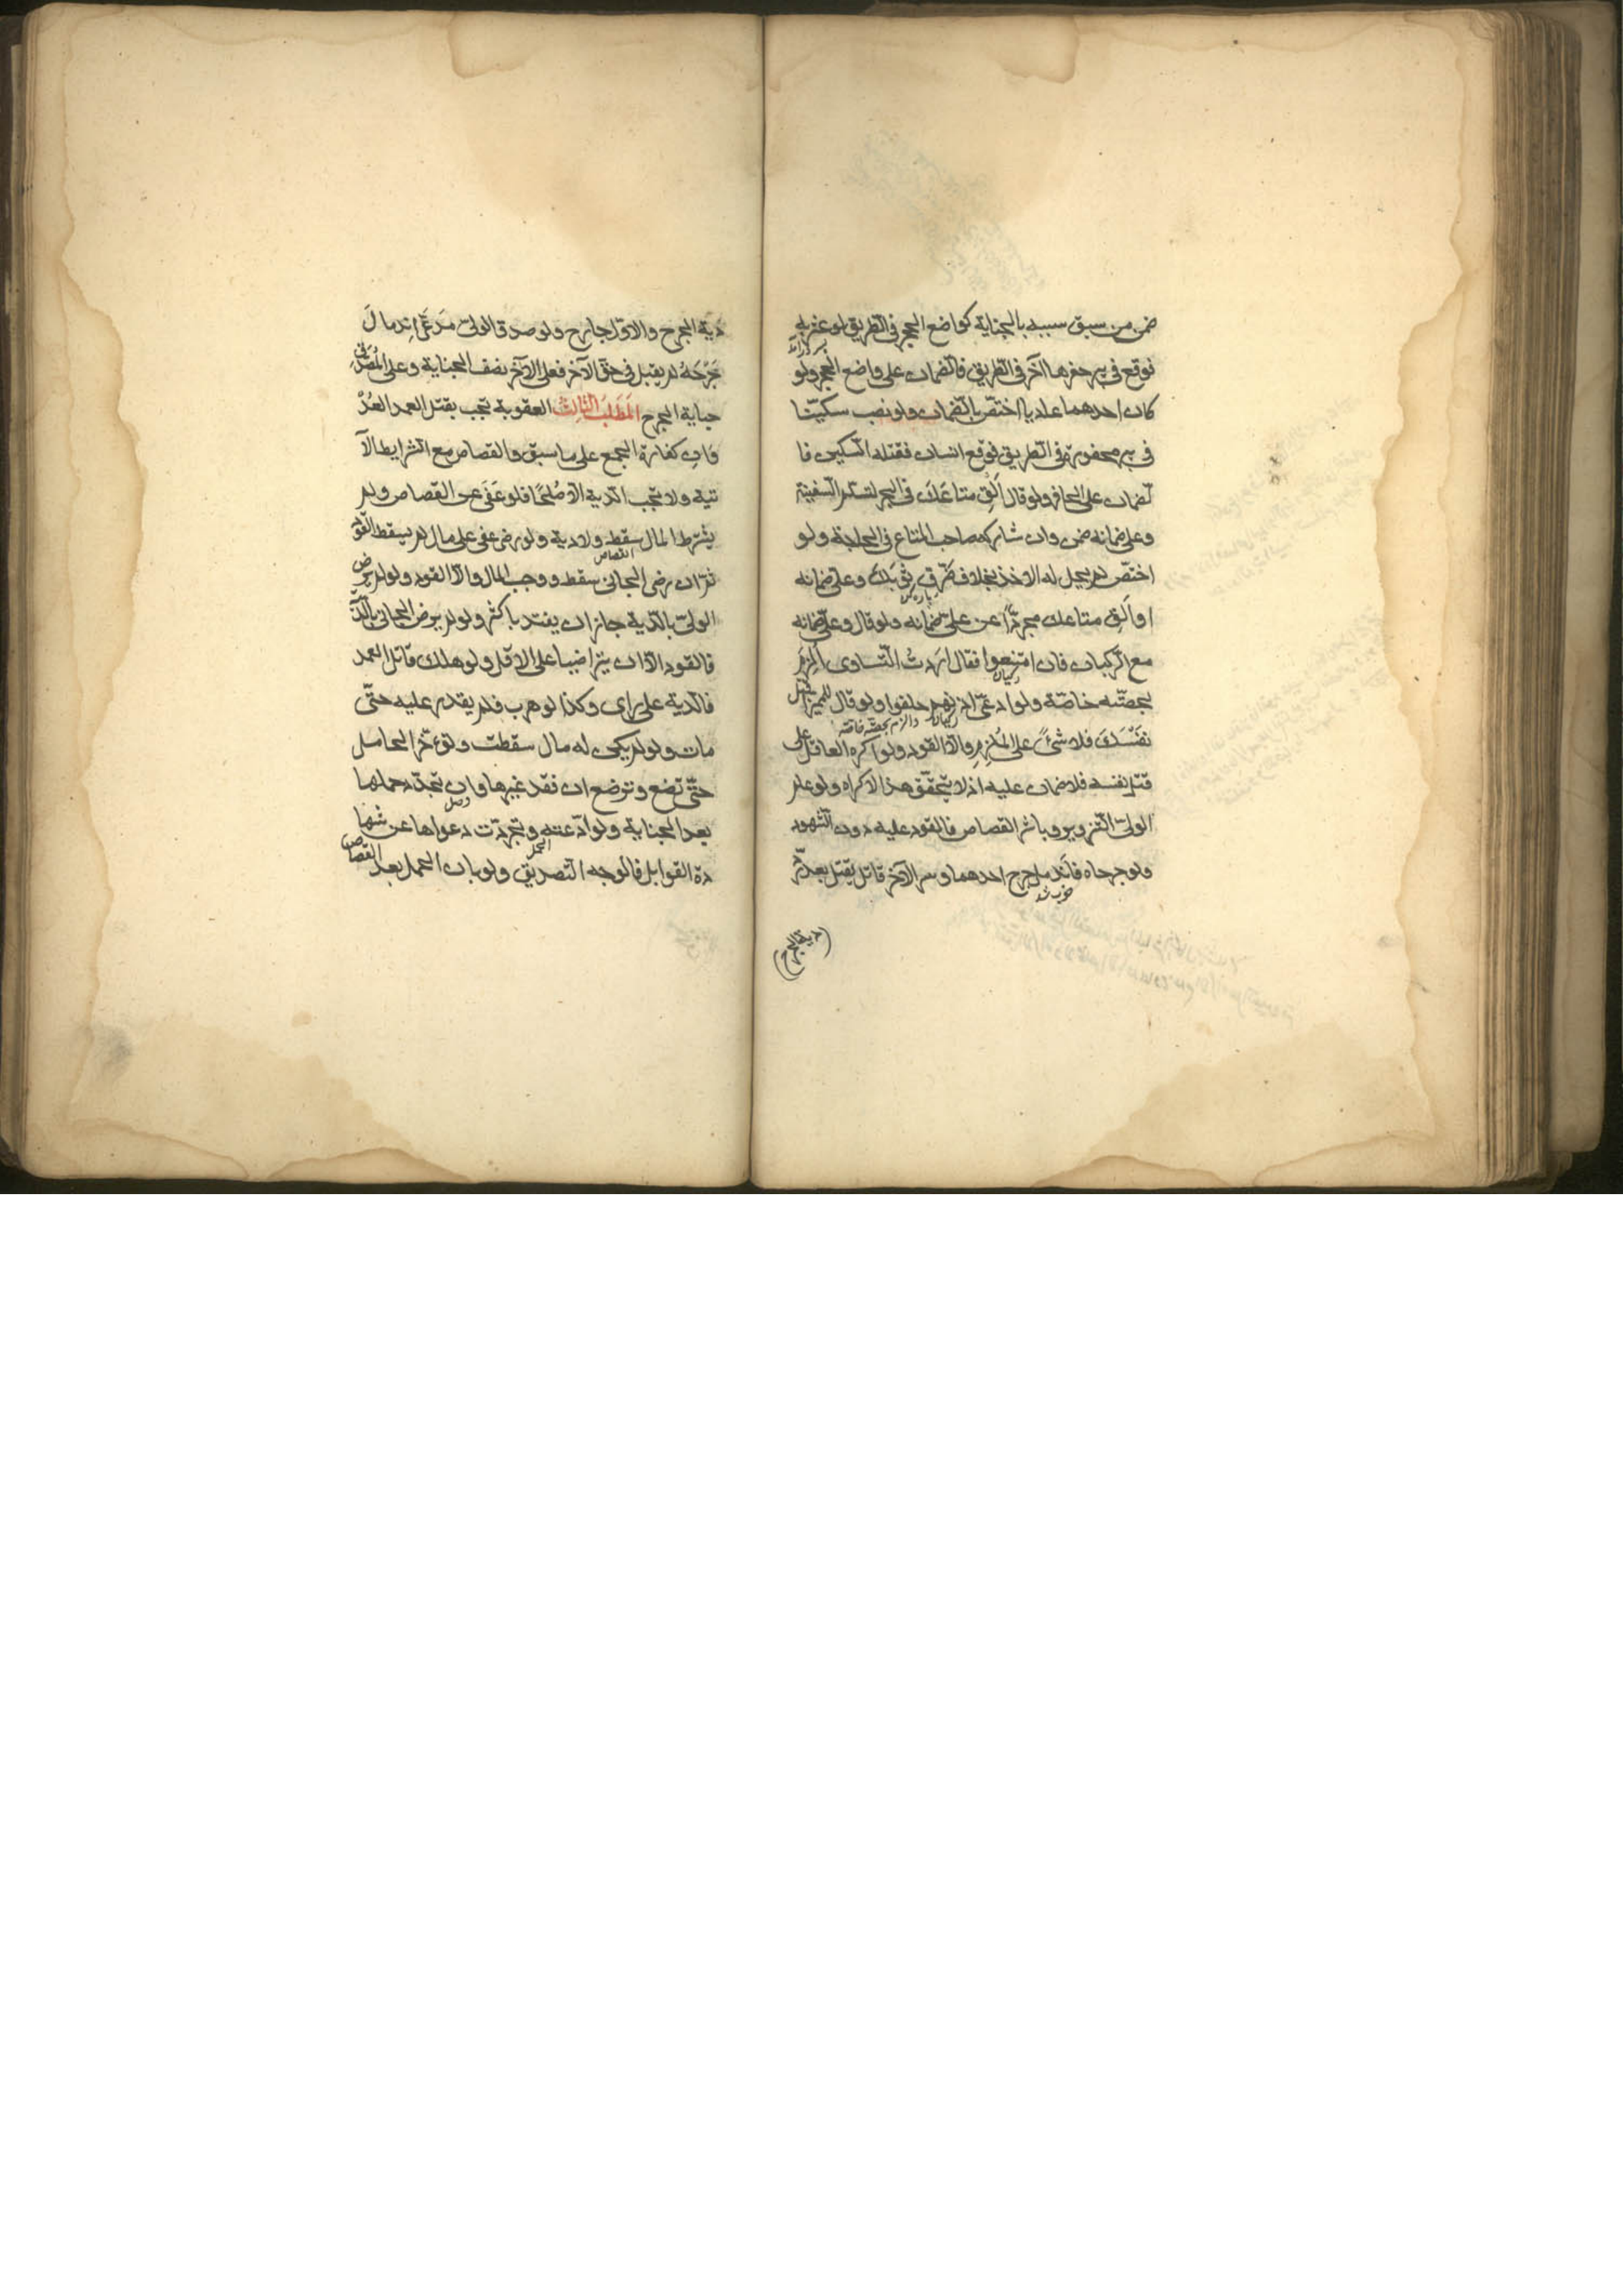 ضمن من سبق سببه بالجناية كواضع الحجر في الطريق لو عثر به
فوقع في بير حفرها آخر في الطريق فالضمان على واضع الحجر ولو
كان احدهما عاديا اختصّ بالضمان ولو نصب سكينا
في بير محفورة في الطريق فوقع انسان فقتله السكين فا
لضمان على الحافر ولو قال اَلقِ متاعَكَ في البحر لتسلم السفينة
وعلىّ ضمانه ضمن وان شاركه صاحب المتاع في الحاجة ولو
اختصّ لم يحل له الاخذ بخلاف مَزِّق ثوبَكَ وعلىّ ضمانه
او اَلقِ متاعك مجردًا عن علىّ ضمانه ولو قال وعلىّ ضمانه
مع الركبان فان امتنعوا فقال اردتُ التساوى اُلزِمَ
بحصّته خاصّة ولو ادعى اذنهم حلفوا ولو قال للمميز اقتل
نفسَكَ فلا شئَ على المُلزِم والا القود ولو اكره العاقل على
قتل نفسه فلا ضمان عليه اذ لا يتحقّق هذا الاكراه ولو علم
الولىّ التزوير وباشر القصاص فالقود عليه دون الشهود
ولو جرحاه فاندمل جرح احدهما وسر الآخر قاتل يقتل بعد ردّ
خوب شد
(دية الجرح)
دية الجرح والاول جارح ولو صدق الولىّ مدعى اندمال
جَرْحَهُ لم يقبل في حق الآخر فعلى الآخر نصف الجناية وعلى المُصَدَّق
جناية الجرح المَطلَبُ الثّالِثُ العقوبة تجب بقتل العمد العُدْ
وان كفارة الجمع على ما سبق والقصاص مع الشرايط الآ
تية ولا تجب الدية الا صُلحًا فلو عَفَى عن القصاص ولم
يشرط المال سقط ولا دية ولو رضى عفى على مال لم يسقط القود
القصاص
ثم ان رضى الجانى سقط ووجب المال والا القود ولو لم يرض
الولىّ بالدية جاز ان يفتد باكثر ولو لم يرض الجانى بالدية
فالقود الا ان يتراضيا على الاقل ولو هلك قاتل العمد
فالدية على راى وكذا لو هرب فلم يقدر عليه حتّى
مات ولو لم يكن له مال سقطت وتؤخّر الحامل
حتّى تضع وترضع ان فقد غيرها وان تجدّد حملها
بعد الجناية ولو ادعته وتجردت دعواها عن شها
الحمل
دة القوابل فالوجه التصديق ولو بان الحمل بعد القصاص